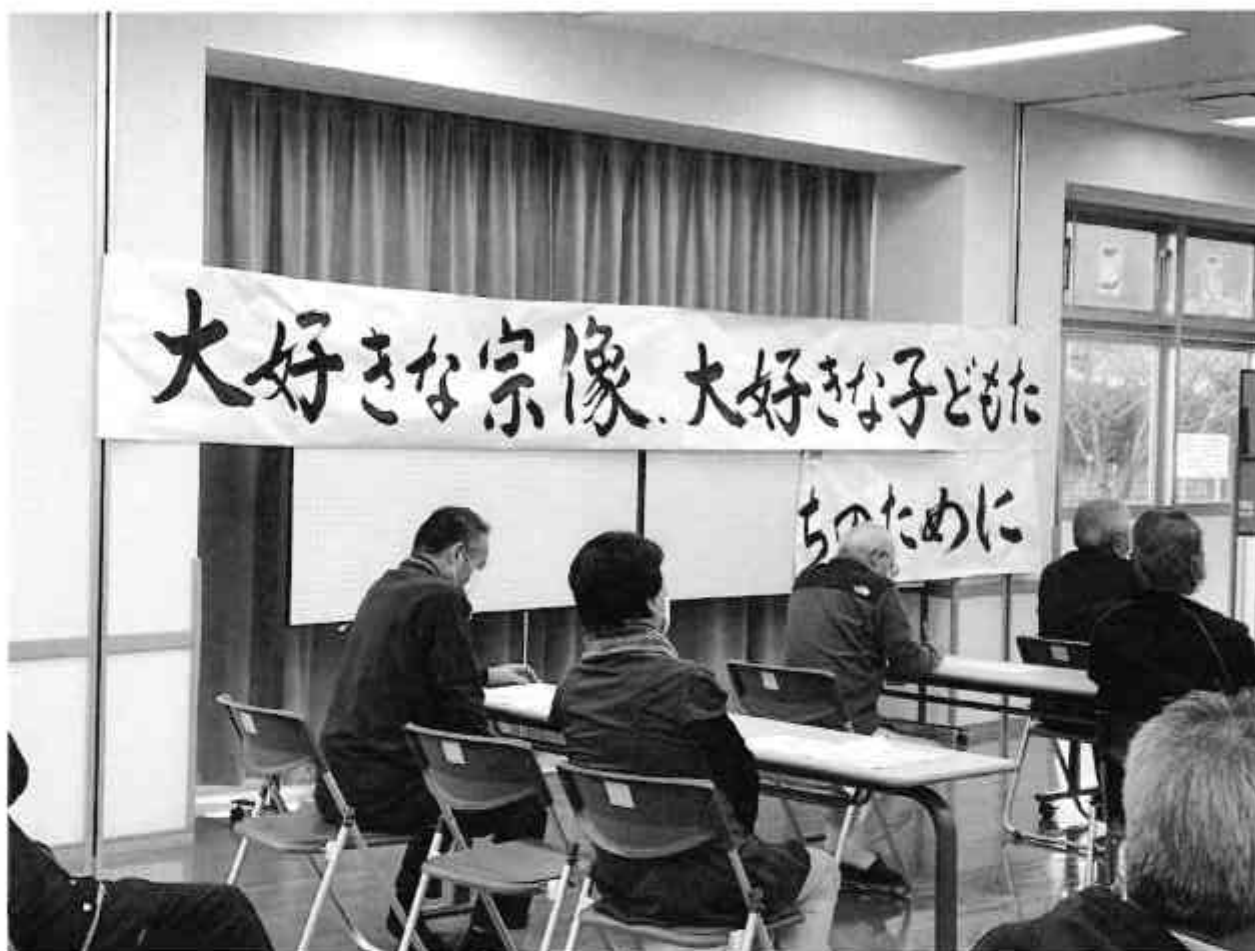 大好きな宗像、大好きな子どもた
ちのために